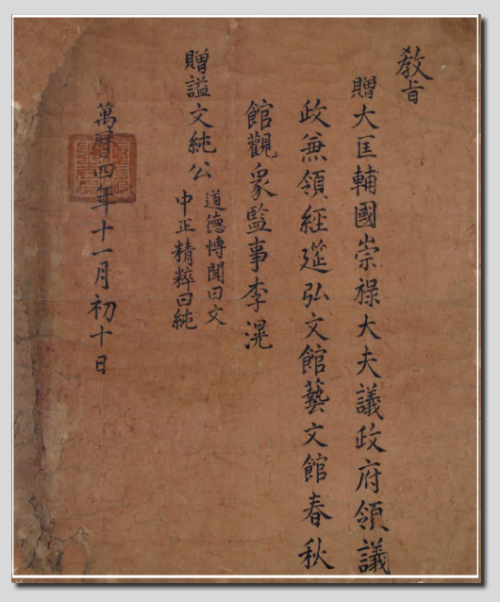 教旨
贈大匡輔國崇祿大夫議政府領議
政兼領經筵弘文館藝文館春秋
館觀象監事李滉
贈謚文純公
道德愽聞曰文
中正精粹曰純
萬曆四年十一月初十日